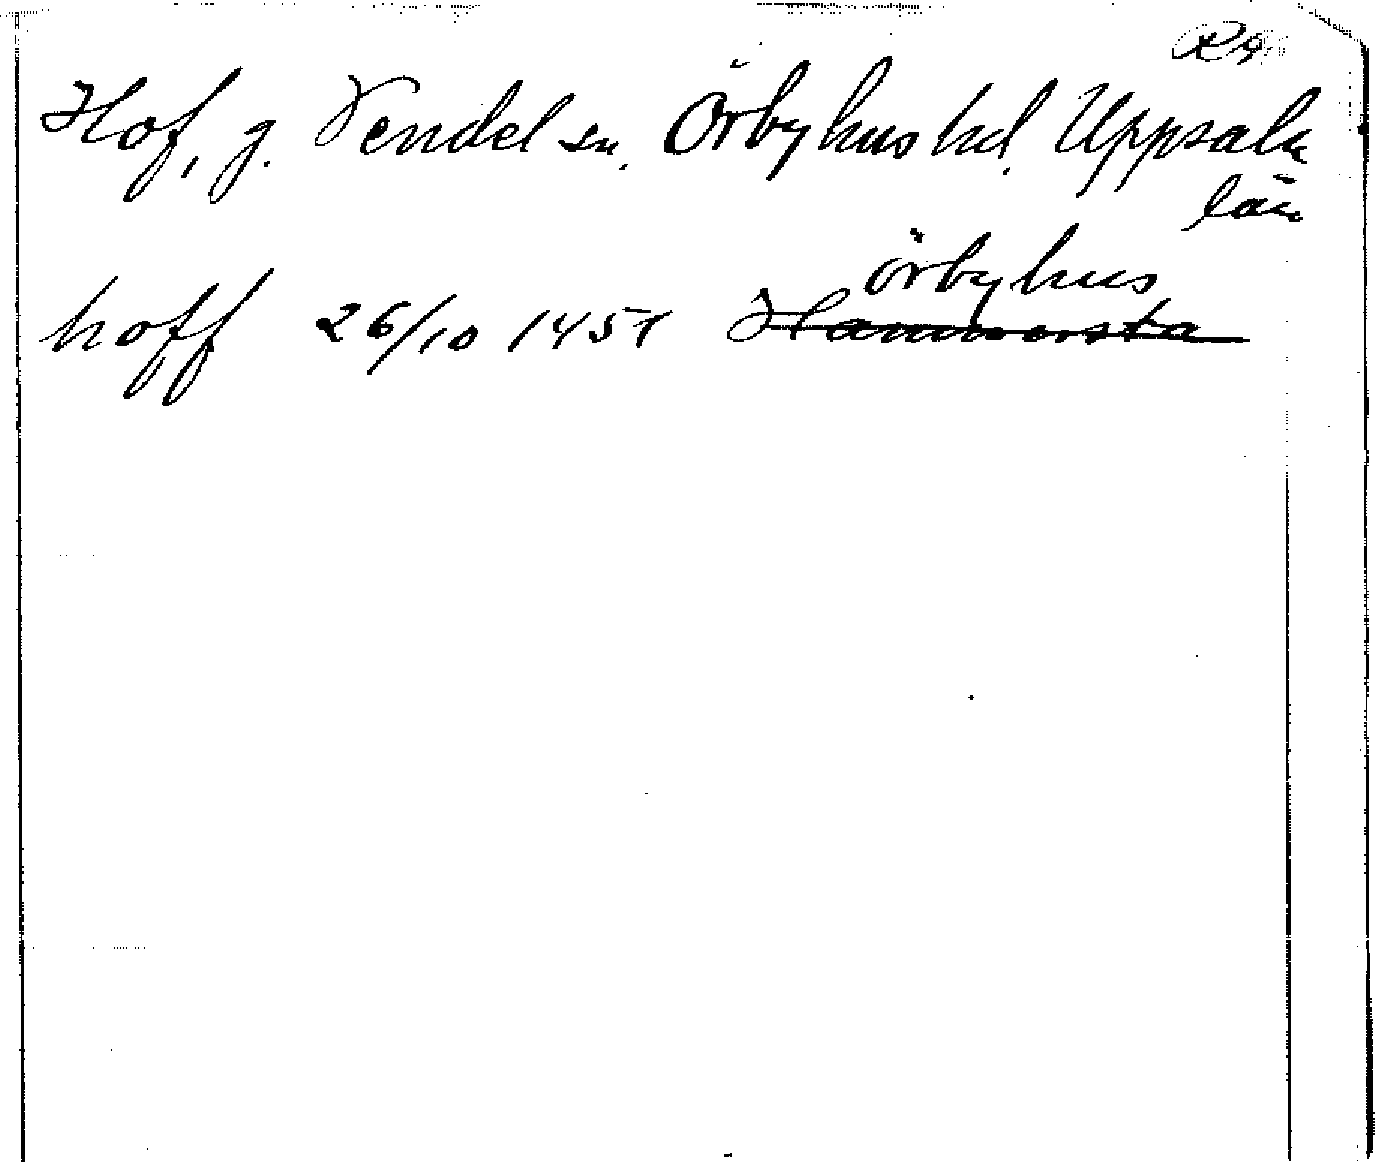 RA
Hof, g. Vendel sn. Örbyhus hd. Uppsala
län
örbyhus
hoff 26/10 1457 Hammersta